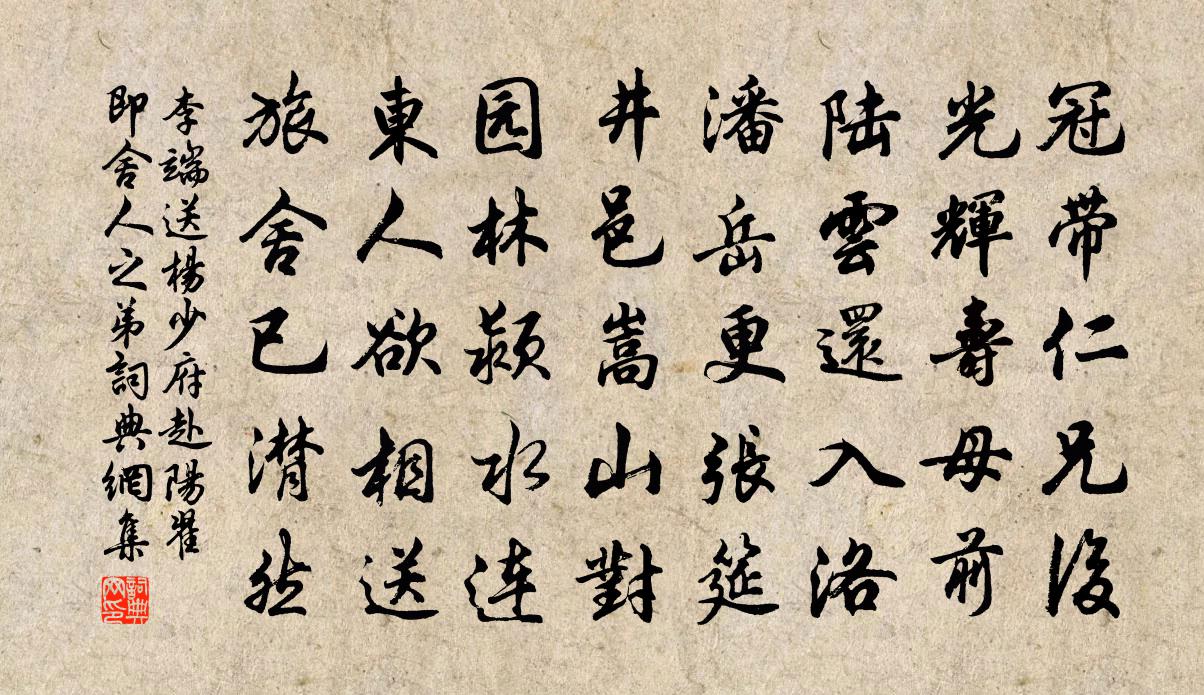 冠带仁兄後
光輝壽母前
陆雲還入洛
潘岳更張筵
井邑嵩山對
园林潁水连
東人欲相送
旅舍已潸然
李端送楊少府赴陽翟
即舍人之弟詞典網集
詞典网印